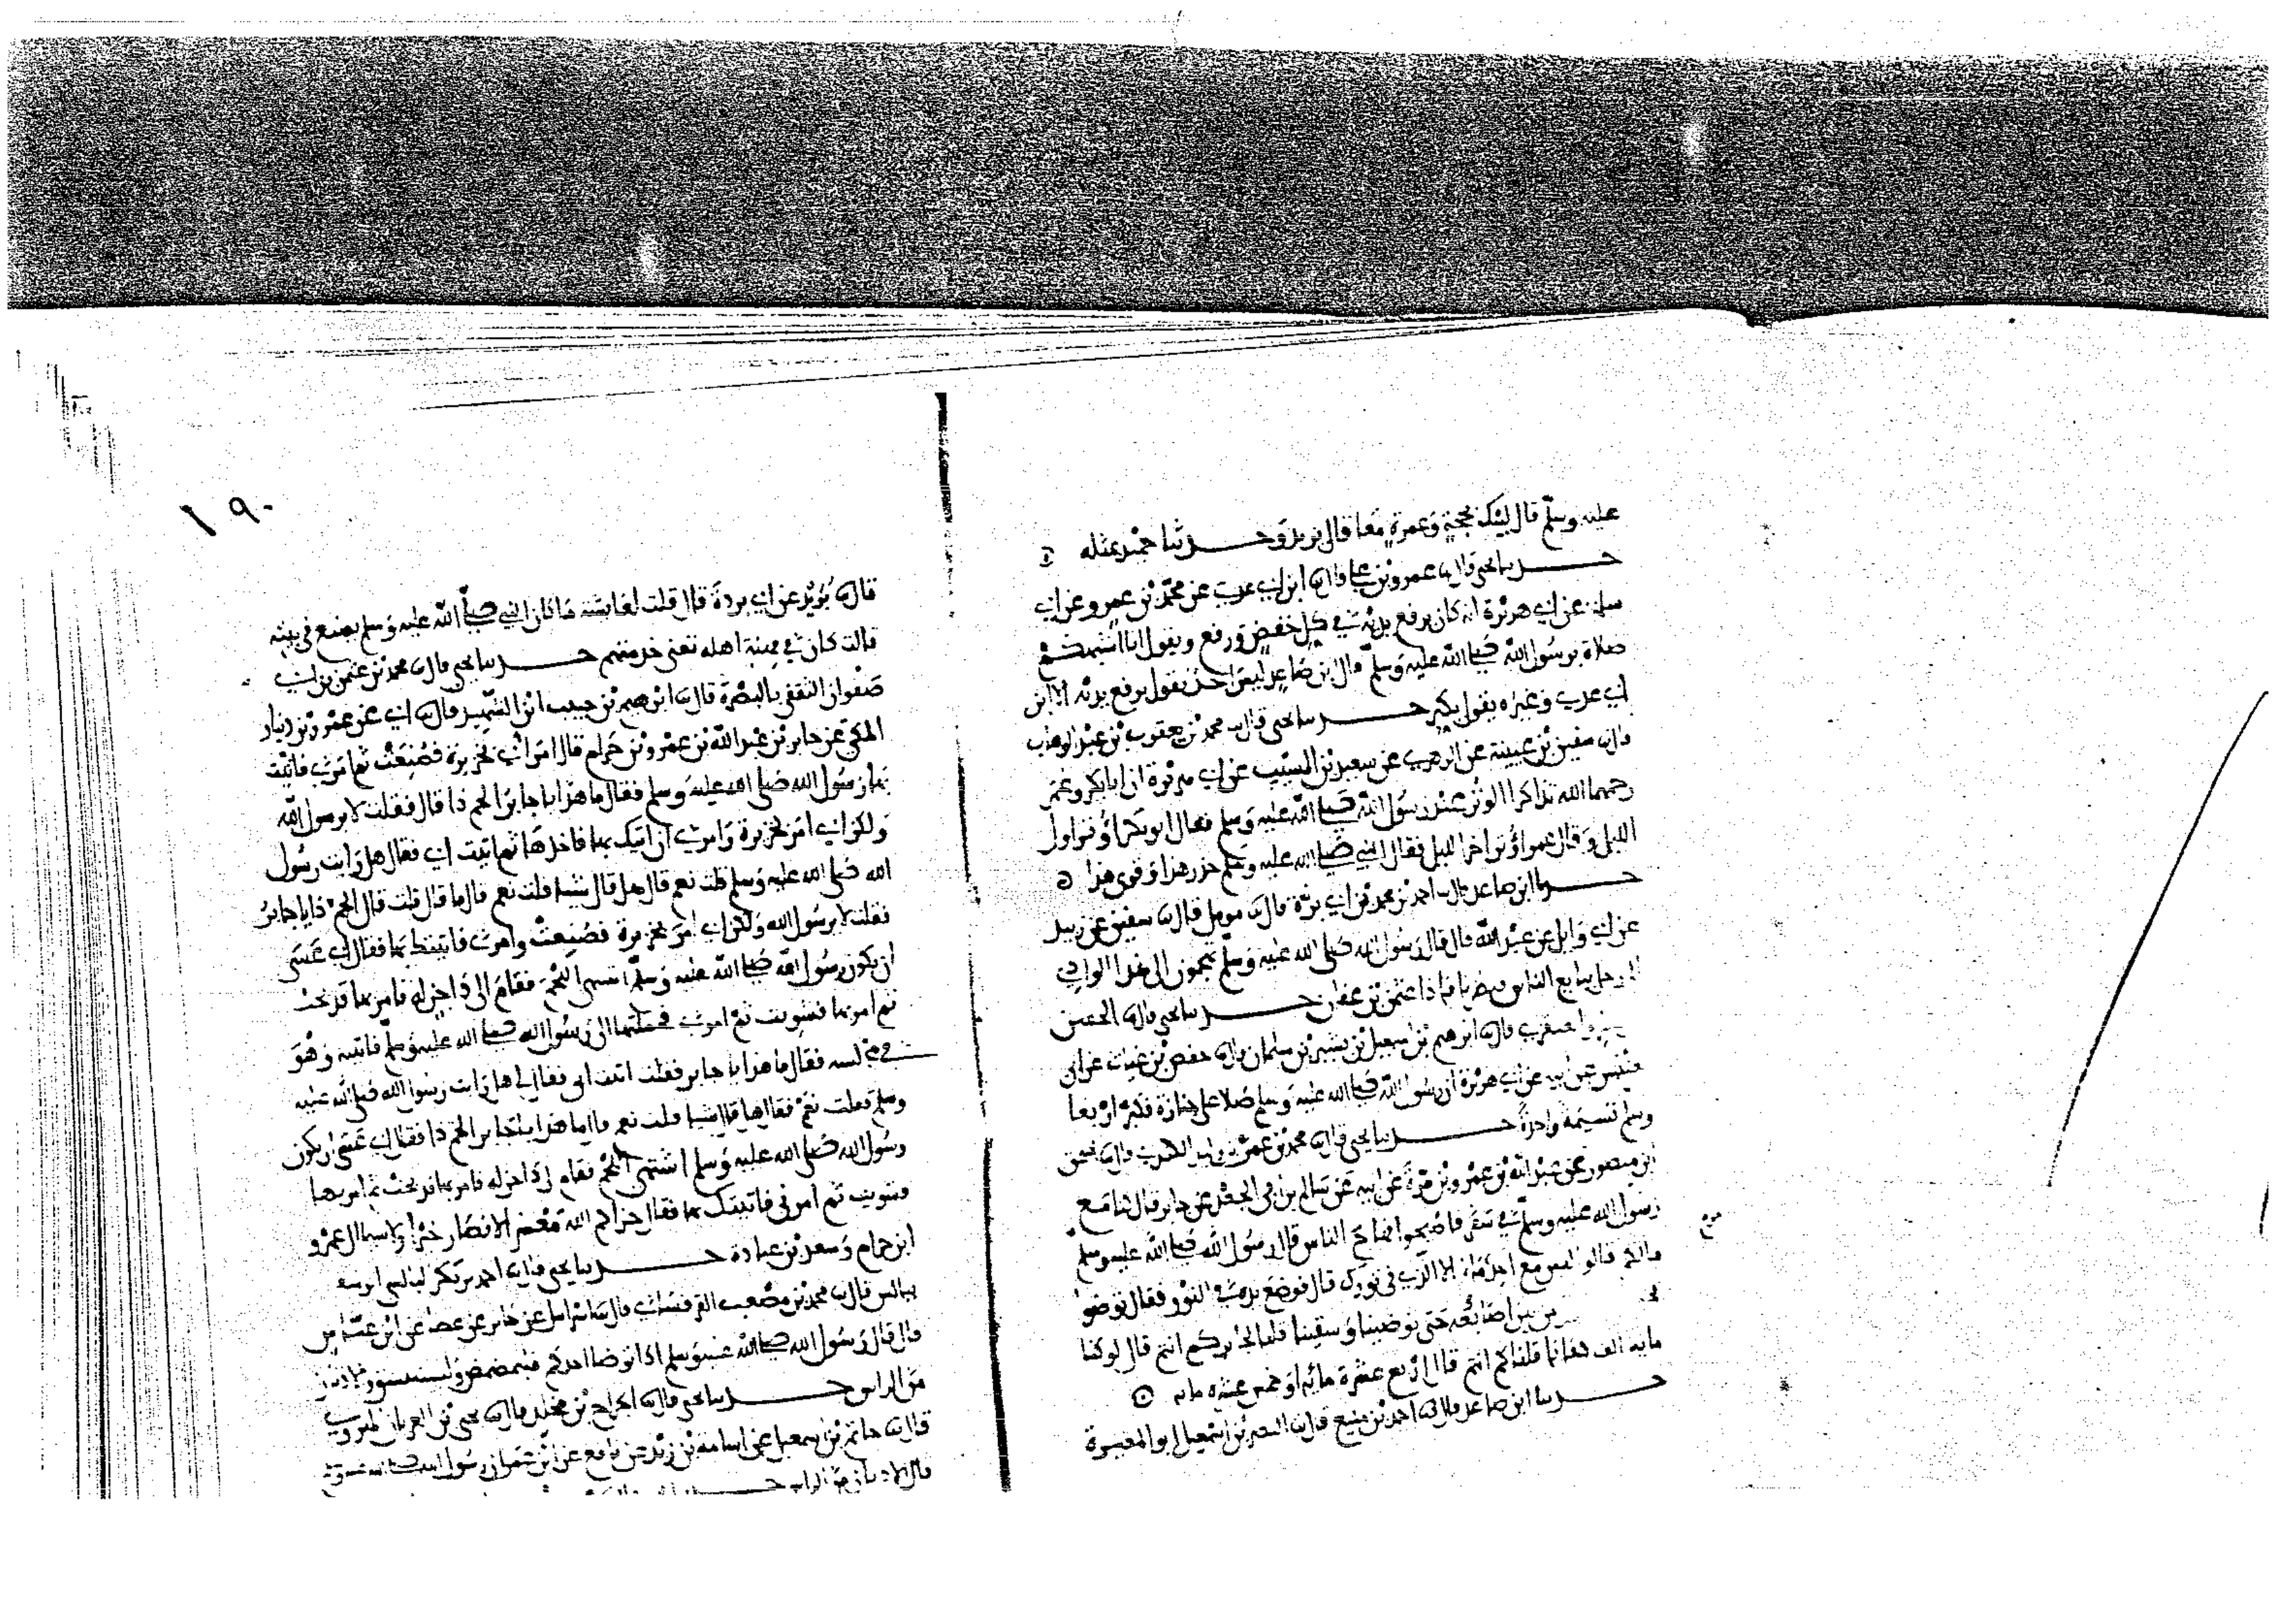 عليه وسلم قال لبيك بحجة وعمرة معا قال يزيد وحدثنا حميد بمثله
حدثنا يحيى قال نا عمرو بن علي قال نا ابن ابي عدي عن محمد بن عمرو عن ابي
سلمة عن ابي هريرة انه كان يرفع يديه في كل خفض ورفع ويقول انا اشبهكم
صلاة برسول الله صلى الله عليه وسلم قال ابن صاعد ليس احد يقول يرفع يديه الا ابن
ابي عدي وغيره يقول يكبر حدثنا يحيى قال نا محمد بن يعقوب بن عبد الوهاب
قال نا سفين بن عيينة عن الزهري عن سعيد بن المسيب عن ابي هريرة ان ابا بكر وعمر
رحمهما الله تذاكرا الوتر عند رسول الله صلى الله عليه وسلم فقال ابو بكر اوتر اول
الليل وقال عمر اوتر اخر الليل فقال النبي صلى الله عليه وسلم حذر هذا وقوي هذا
حدثنا ابن صاعد قال نا احمد بن محمد بن ابي بزة قال نا مومل قال نا سفين عن زبيد
عن ابي وايل عن عبد الله قال قال رسول الله صلى الله عليه وسلم تهجمون الى هذا الوادي
رجل يبايع الناس فاذا عثمن بن عفان حدثنا يحيى قال نا الحسن
قال نا ابرهيم بن اسمعيل بن بشير بن سلمان قال نا حفص بن غياث عن ابي
عن ابيه عن ابي هريرة ان رسول الله صلى الله عليه وسلم صلا على جنازة فكبر اربعا
وسلم تسليمة واحدة حدثنا يحيى قال نا محمد بن عمر بن وليد الكندي قال نا اسحق
ابن منصور عن عبد الله بن عمرو بن مرة عن ابيه عن سالم بن ابي الجعد عن جابر قال كنا مع
رسول الله صلى الله عليه وسلم في سفر فاصبحوا فصاح الناس قال رسول الله صلى الله عليه وسلم
مالكم قالوا ليس مع احد ماء الا الذي في تورك قال فوضع يده في التور فقال توضوا
من بين اصابعه حتى توضينا وسقينا قلنا لجابر كم انتم قال لو كنا
ماية الف كفانا قلنا كم انتم قال اربع عشرة مائه او خمس عشره مايه
حدثنا ابن صاعد قال نا احمد بن منيع قال نا النضر بن اسمعيل ابو المغيرة
١٩٠
قال نا بريد عن ابي بردة قال قلت لعائشة ما كان النبي صلى الله عليه وسلم يصنع في بيته
قالت كان في مهنة اهله تعني خدمتهم حدثنا يحيى قال نا محمد بن عثمن بن ابي
صفوان الثقفي بالبصرة قال نا ابرهيم بن حبيب ابن الشهيد قال نا ابي عن عمرو بن دينار
المكي عن جابر بن عبد الله بن عمرو بن حرام قال امر ابي بخزيرة فصنعت ثم امرني فاتيت
بها رسول الله صلى الله عليه وسلم فقال ما هذا يا جابر الحم ذا قال فقلت لا يرسول الله
ولكن ابي امر بخزيرة وامرني ان اتيك بها فاخذها ثم اتيت ابي فقال هل رايت رسول
الله صلى الله عليه وسلم قلت نعم قال هل قال شيا قلت نعم قال ما قال قلت قال الحم ذا يا جابر
فقلت لا يرسول الله ولكن ابي امر بخزيرة فصنعت وامرني فاتيتك بها فقال ابي عسى
ان يكون رسول الله صلى الله عليه وسلم اشتهى اللحم فقام الى داجن له فامر بها فذبحت
ثم امر بها فشويت ثم امرني فحملتها الى رسول الله صلى الله عليه وسلم فاتيته وهو
في مجلسه فقال ما هذا يا جابر فقلت اتيت ابي فقال لي هل رايت رسول الله صلى الله عليه
وسلم فقلت نعم فقال هل قال شيا قلت نعم قال ما هذا يا جابر الحم ذا فقال ابي عسى ان يكون
رسول الله صلى الله عليه وسلم اشتهى اللحم فقام الى داجن له فامر بها فذبحت ثم امر بها
فشويت ثم امرني فاتيتك بها فقال جزاكم الله معشر الانصار خيرا ولا سيما ال عمرو
ابن حرام وسعد بن عبادة حدثنا يحيى قال نا احمد بن بكر
ببالس قال نا محمد بن مصعب القرقساني قال نا اسرائيل عن جابر عن عطا عن ابن عباس
قال قال رسول الله صلى الله عليه وسلم اذا توضا احدكم فليمضمض وليستنشق والاذنان
من الراس حدثنا يحيى قال نا الجراح بن مخلد قال نا يحيى بن العريان الهروي
قال نا حاتم بن اسمعيل عن اسامة بن زيد عن نافع عن ابن عمر ان رسول الله صلى الله عليه وسلم
قال الاذنان من الراس